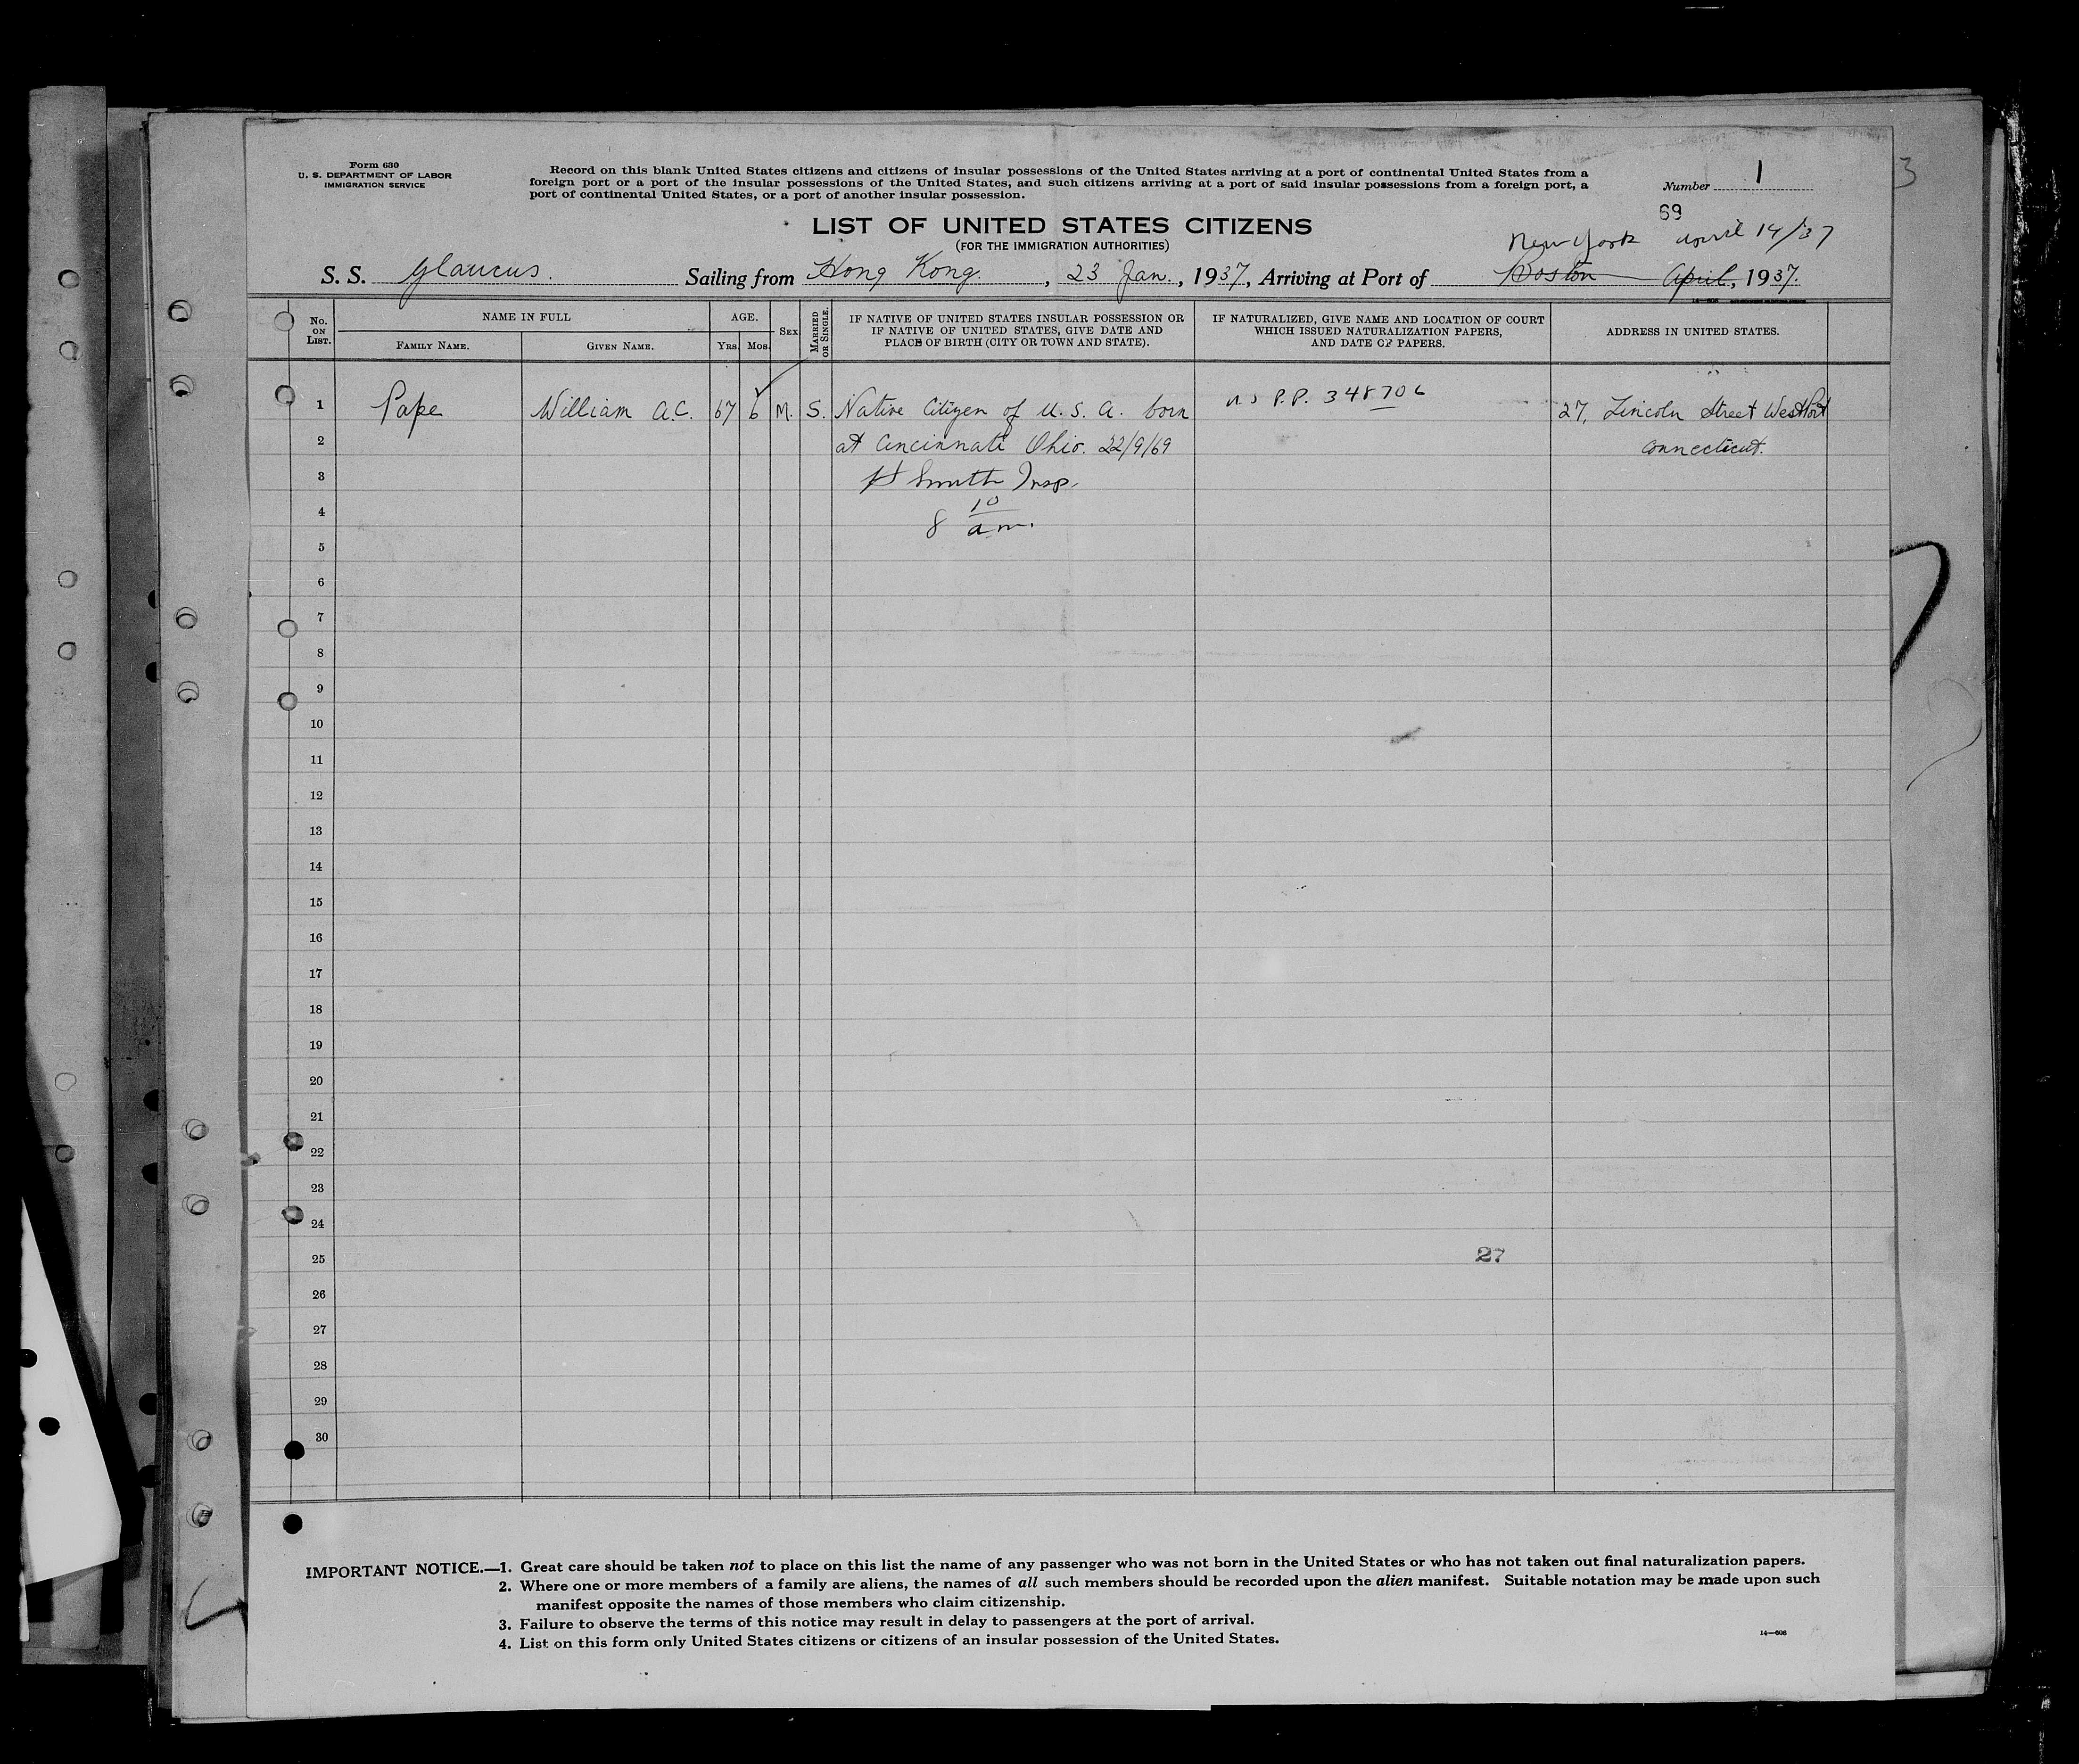 Form 630
U. S. DEPARTMENT OF LABOR
IMMIGRATION SERVICE
Record on this blank United States citizens and citizens of insular possessions of the United States arriving at a port of continental United States from a
foreign port or a port of the insular possessions of the United States, and such citizens arriving at a port of said insular possessions from a foreign port, a
port of continental United States, or a port of another insular possession.
Number 1
3
69
LIST OF UNITED STATES CITIZENS
(FOR THE IMMIGRATION AUTHORITIES)
New York April 14/37
S. S. Glaucus. Sailing from Hong Kong. , 23 Jan. , 1937, Arriving at Port of Boston April, 1937.
14-508
No. ON LIST.
NAME IN FULL
FAMILY NAME.
GIVEN NAME.
AGE.
YRS.
MOS.
SEX
MARRIED OR SINGLE.
IF NATIVE OF UNITED STATES INSULAR POSSESSION OR
IF NATIVE OF UNITED STATES, GIVE DATE AND
PLACE OF BIRTH (CITY OR TOWN AND STATE).
IF NATURALIZED, GIVE NAME AND LOCATION OF COURT
WHICH ISSUED NATURALIZATION PAPERS,
AND DATE OF PAPERS.
ADDRESS IN UNITED STATES.
1 Pape William A.C. 67 6 M. S. Native Citizen of U. S. A. born U S P.P. 348706 27, Lincoln Street Westport
2 at Cincinnati Ohio. 22/9/69 Connecticut.
3 H Smith Insp.
4 8 10 am.
5
6
7
8
9
10
11
12
13
14
15
16
17
18
19
20
21
22
23
24
25 27
26
27
28
29
30
IMPORTANT NOTICE.—1. Great care should be taken not to place on this list the name of any passenger who was not born in the United States or who has not taken out final naturalization papers.
2. Where one or more members of a family are aliens, the names of all such members should be recorded upon the alien manifest. Suitable notation may be made upon such
manifest opposite the names of those members who claim citizenship.
3. Failure to observe the terms of this notice may result in delay to passengers at the port of arrival.
4. List on this form only United States citizens or citizens of an insular possession of the United States.
14—508